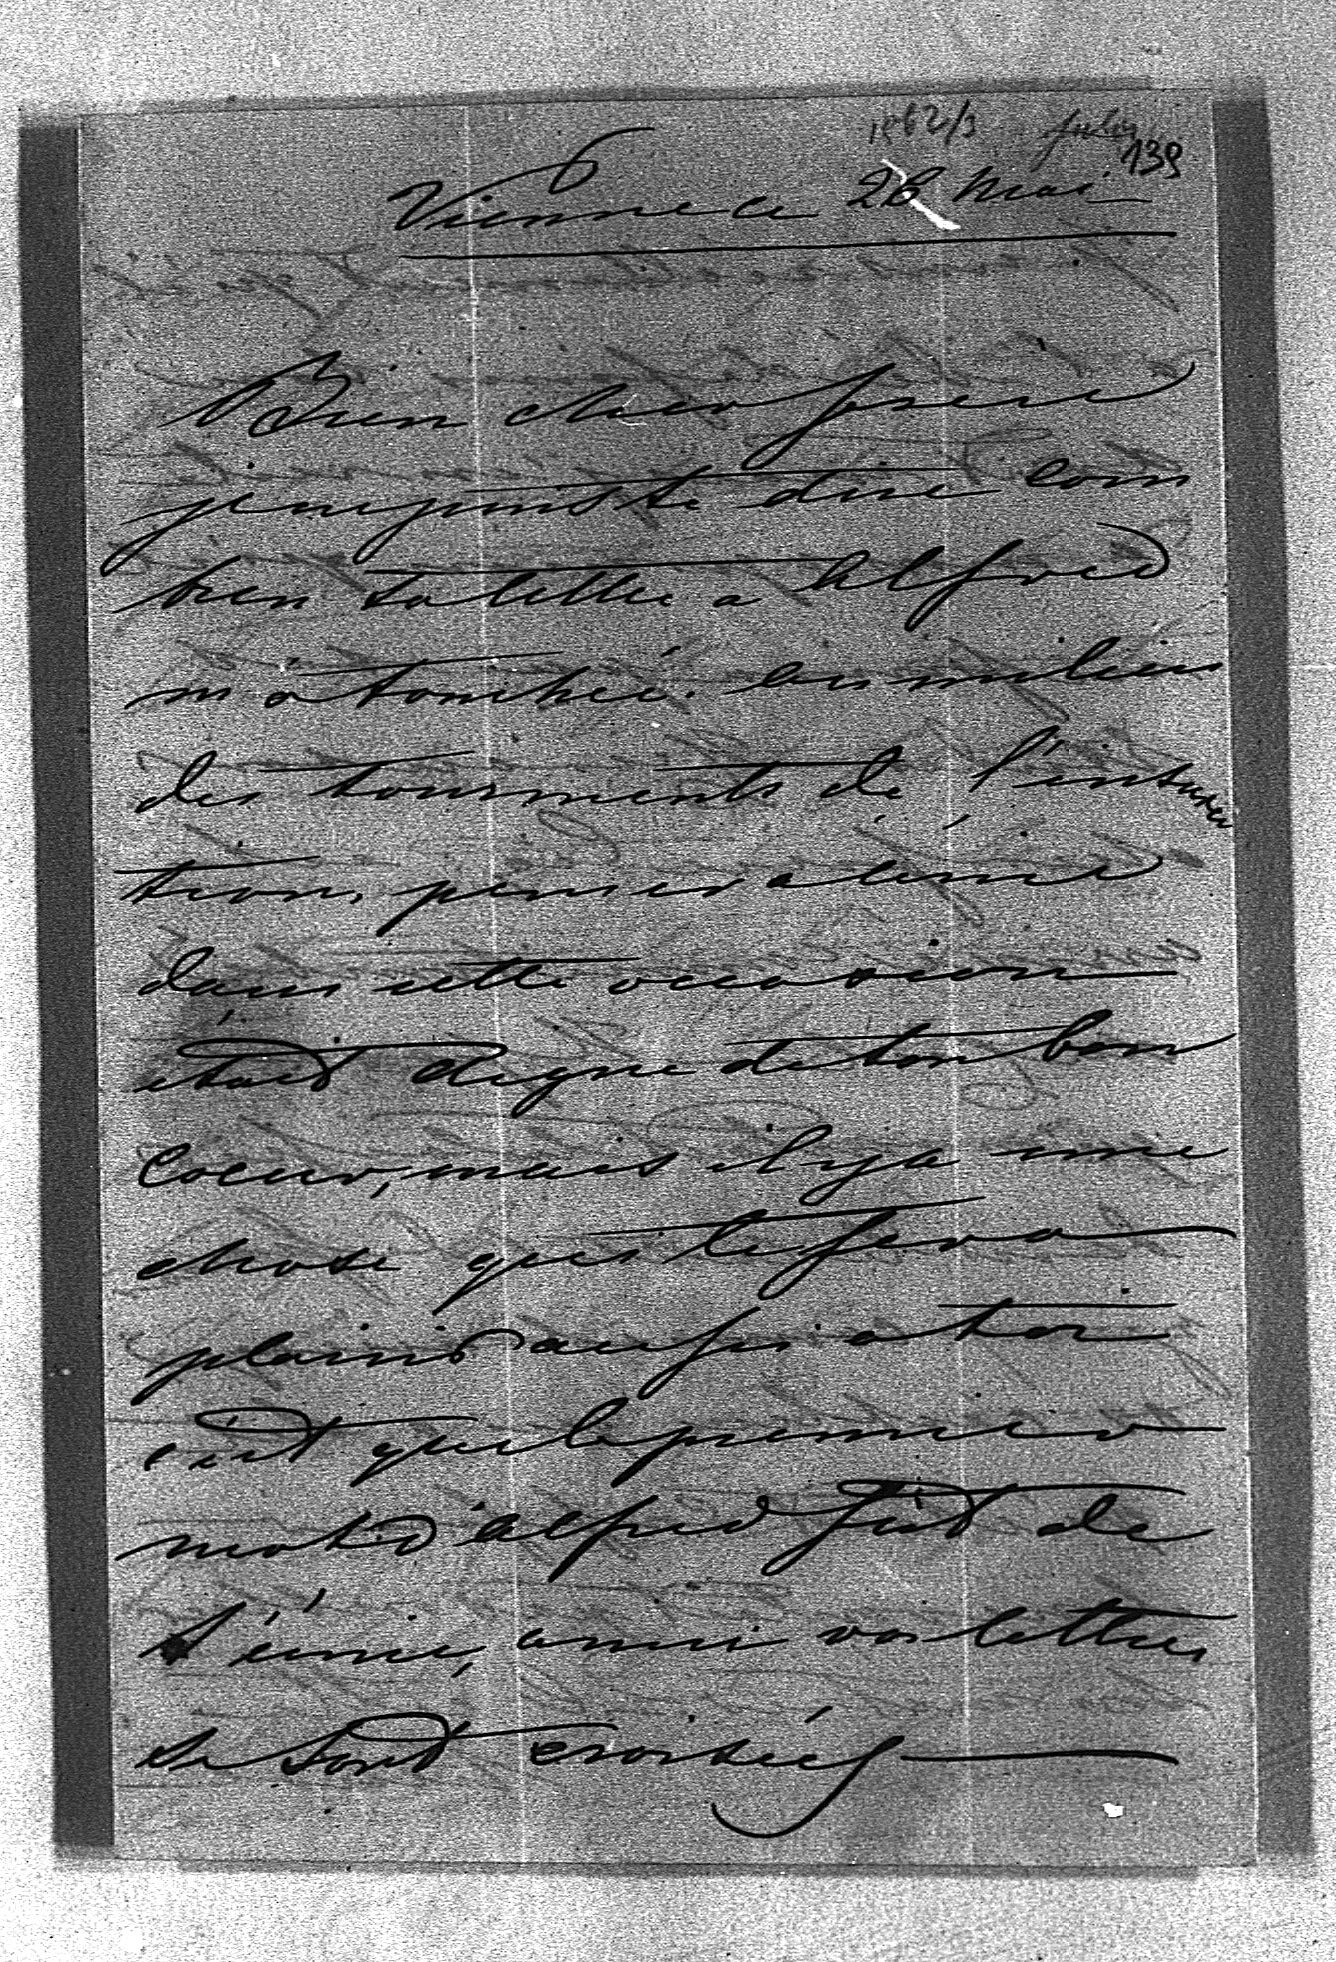 1862/3
139
Vienne ce 28 Mai
Bien cher frere
je ne puis te dire com
bien ta lettre a Alfred
m'a touchée. au milieu
des tourments de l'intoxica
tion, penser a
dans cette occasion
étoit digne de ton bon
coeur, mais il y a une
chose qui te fera
plaisir aussi a toi
c'est que le premier
mot d'Alfred fut de
t'écrire, ainsi vos lettres
se sont croisées